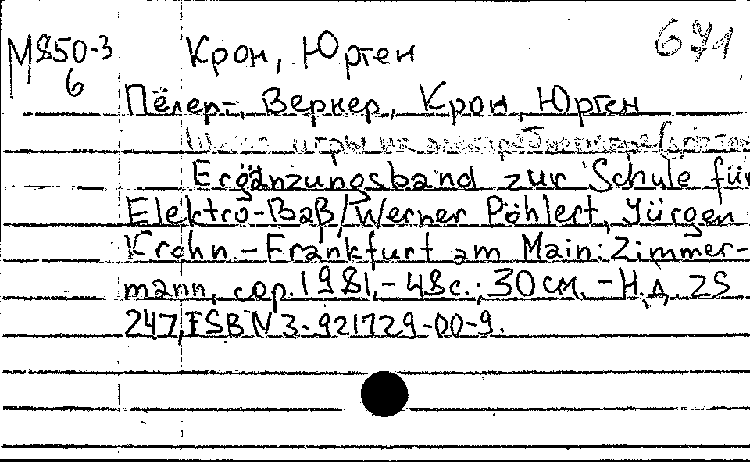 М850-3
6
Крон, Юрген
671
Пёлерт, Вернер, Крон, Юрген
Школа игры на
Ergänzungsband zur Schule für
Elektro-Baß/Werner Pöhlert, Jürgen
Krohn - Frankfurt am Main: Zimmer-
mann, cop. 1981,- 48с.; 30см. - Н.д. ZS
247, ISBN 3-921729-00-9.